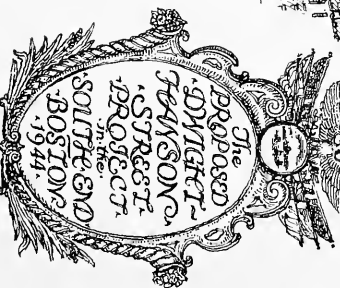 The
PROPOSED
DWIGHT~
HANSON
STREET
PROJECT
in the
SOUTH END
BOSTON
1944